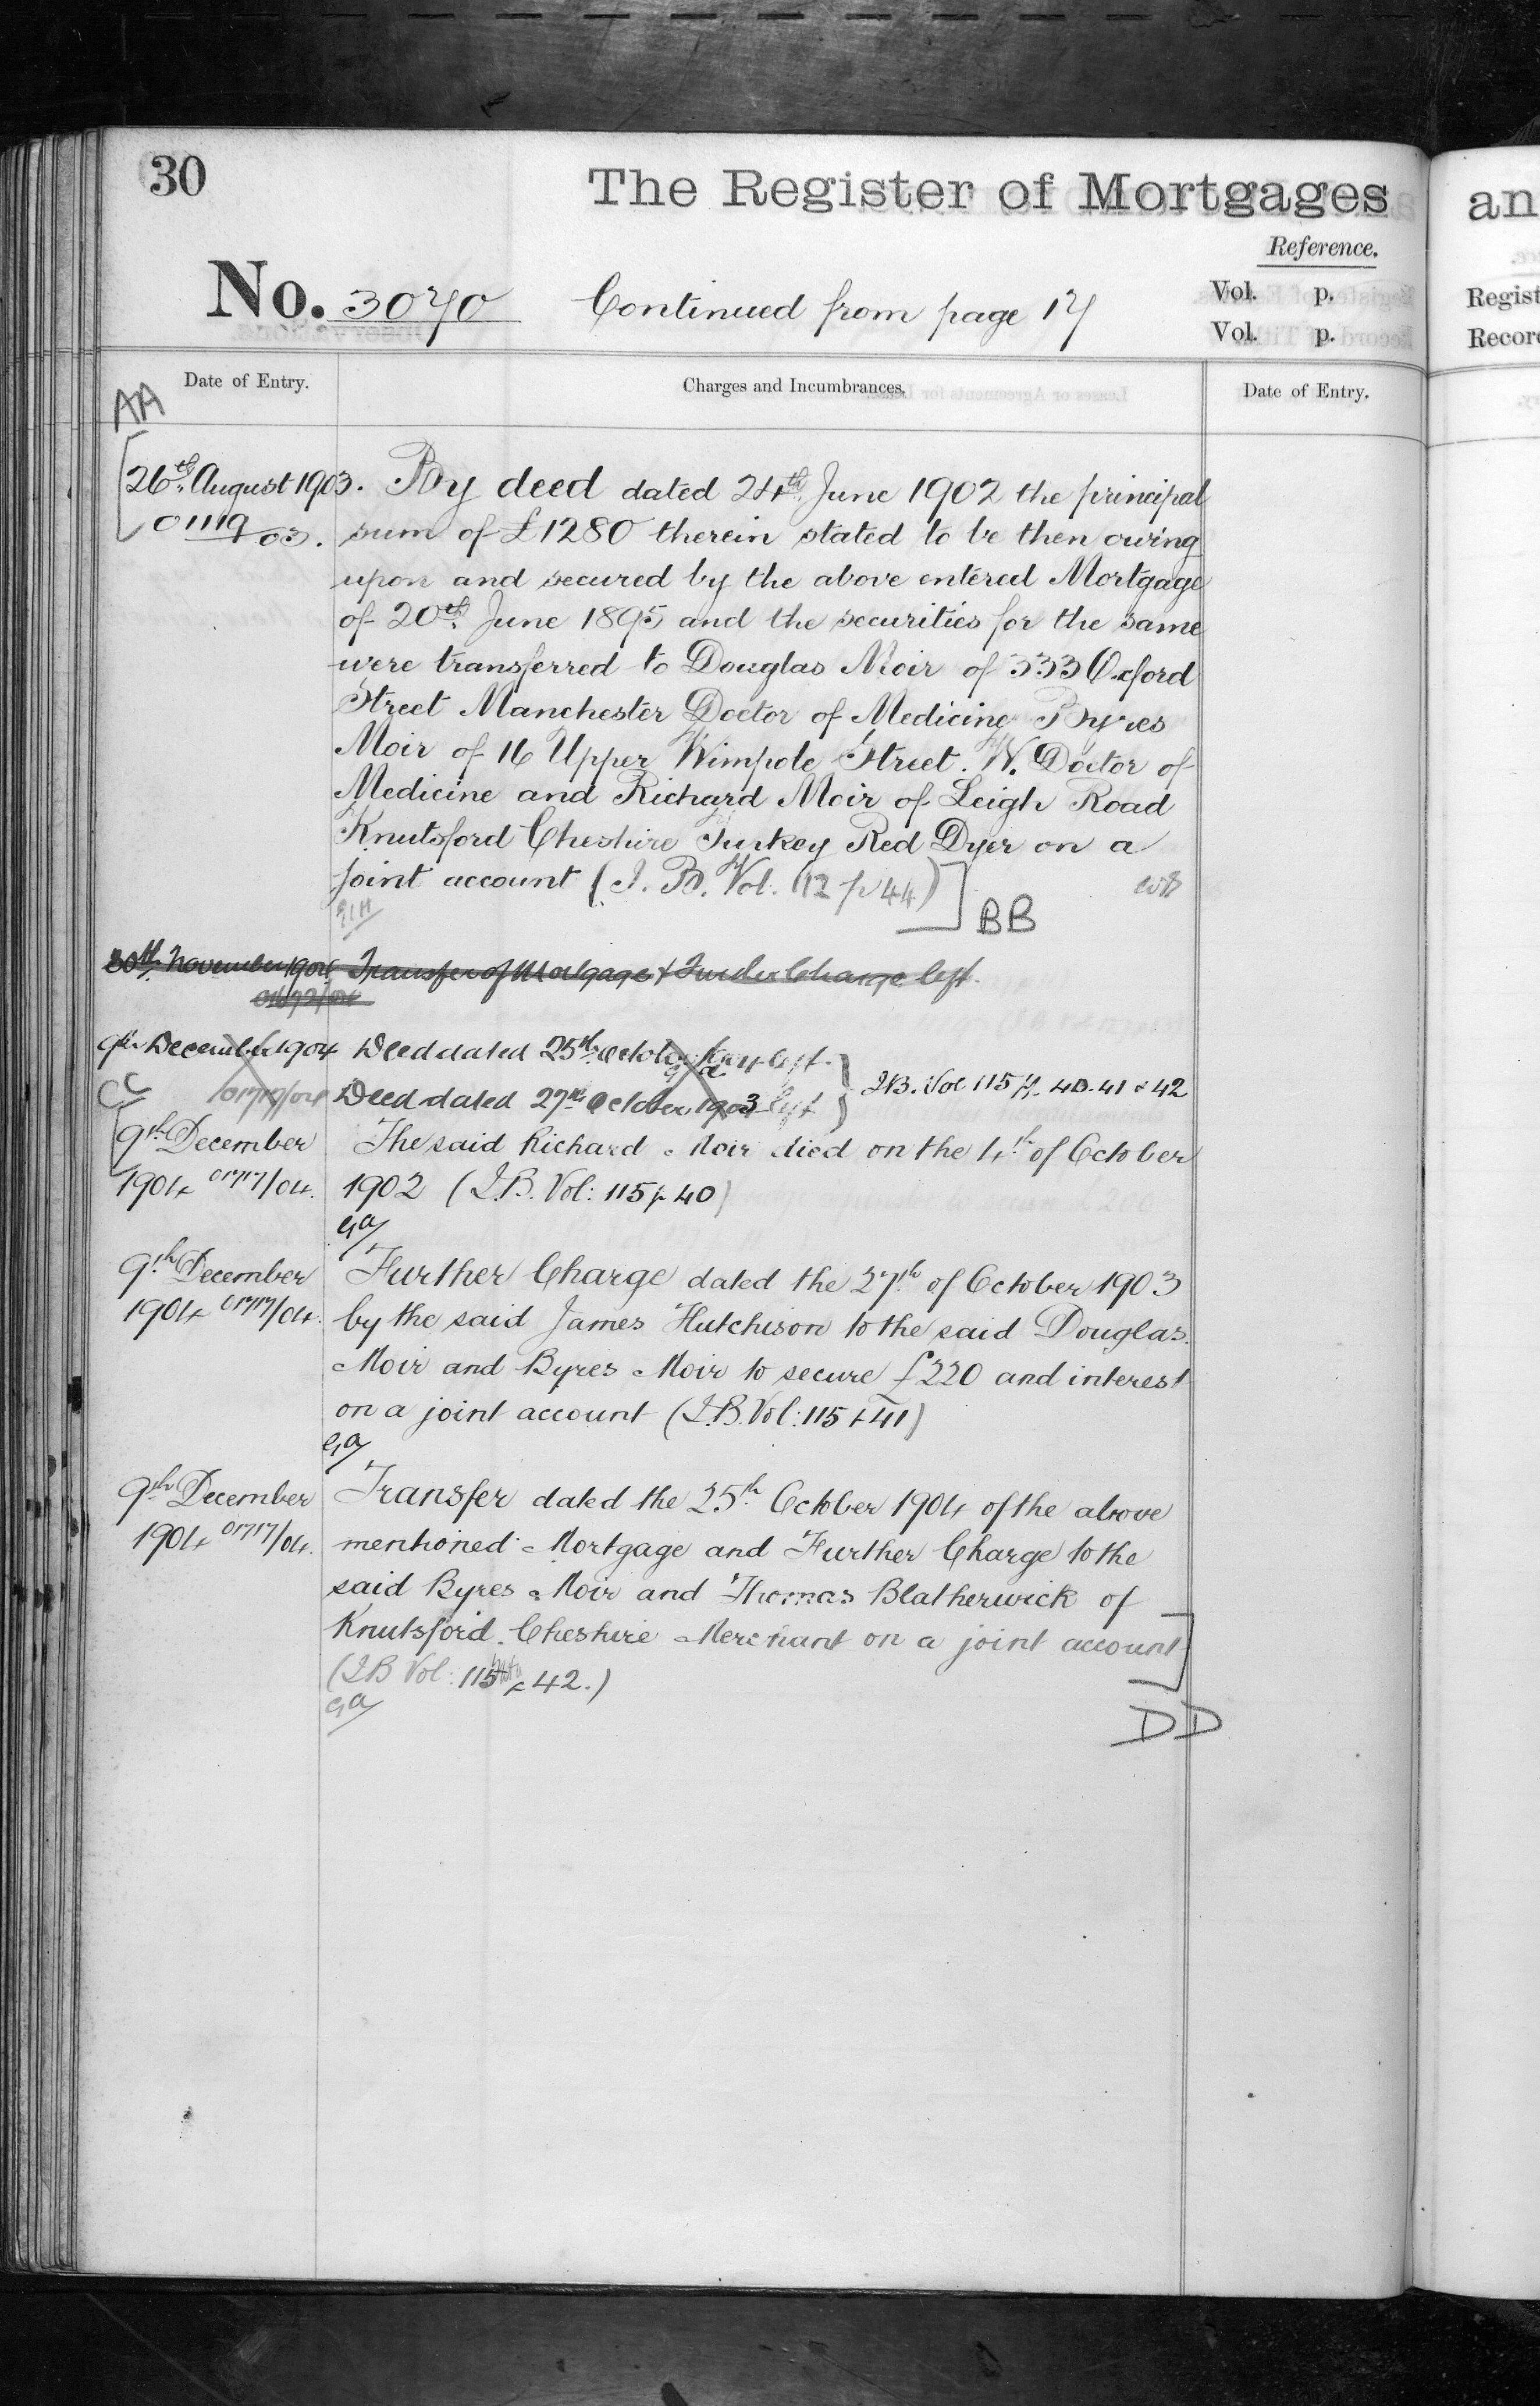 30
The Register of Mortgages
an
Reference.
No. 3070 Continued from page 17
Vol. p.
Vol. p.
Regist
Record
Date of Entry.
Charges and Incumbrances.
Date of Entry.
AA
26th August 1903. By deed dated 24th June 1902 the principal
01119/03. sum of £1280 therein stated to be then owing
upon and secured by the above entered Mortgage
of 20th June 1895 and the securities for the same
were transferred to Douglas Moir of 333 Oxford
Street Manchester Doctor of Medicine Byres
Moir of 16 Upper Wimpole Street. W. Doctor of
Medicine and Richard Moir of Leigh Road
Knutsford Cheshire Turkey Red Dyer on a
joint account (I. B. Vol. 112 p 44)
BB
30th November 1904 Transfer of Mortgage & Further Charge left.
9th December 1904 Deed dated 25th October 1904 left.
01717/04 Deed dated 27th October 1903 left
I.B. Vol 115 p. 40. 41 & 42
CC
9th December The said Richard Moir died on the 4th of October
1904 01717/04. 1902 (I.B. Vol: 115 p 40)
GA
9th December Further Charge dated the 27th of October 1903
1904 01717/04. by the said James Hutchison to the said Douglas
Moir and Byres Moir to secure £220 and interest
on a joint account (I.B. Vol: 115 p 41)
GA
9th December Transfer dated the 25th October 1904 of the above
1904 01717/04. mentioned Mortgage and Further Charge to the
said Byres Moir and Thomas Blatherwick of
Knutsford Cheshire Merchant on a joint account
(I B Vol: 115 p 42.)
GA
DD